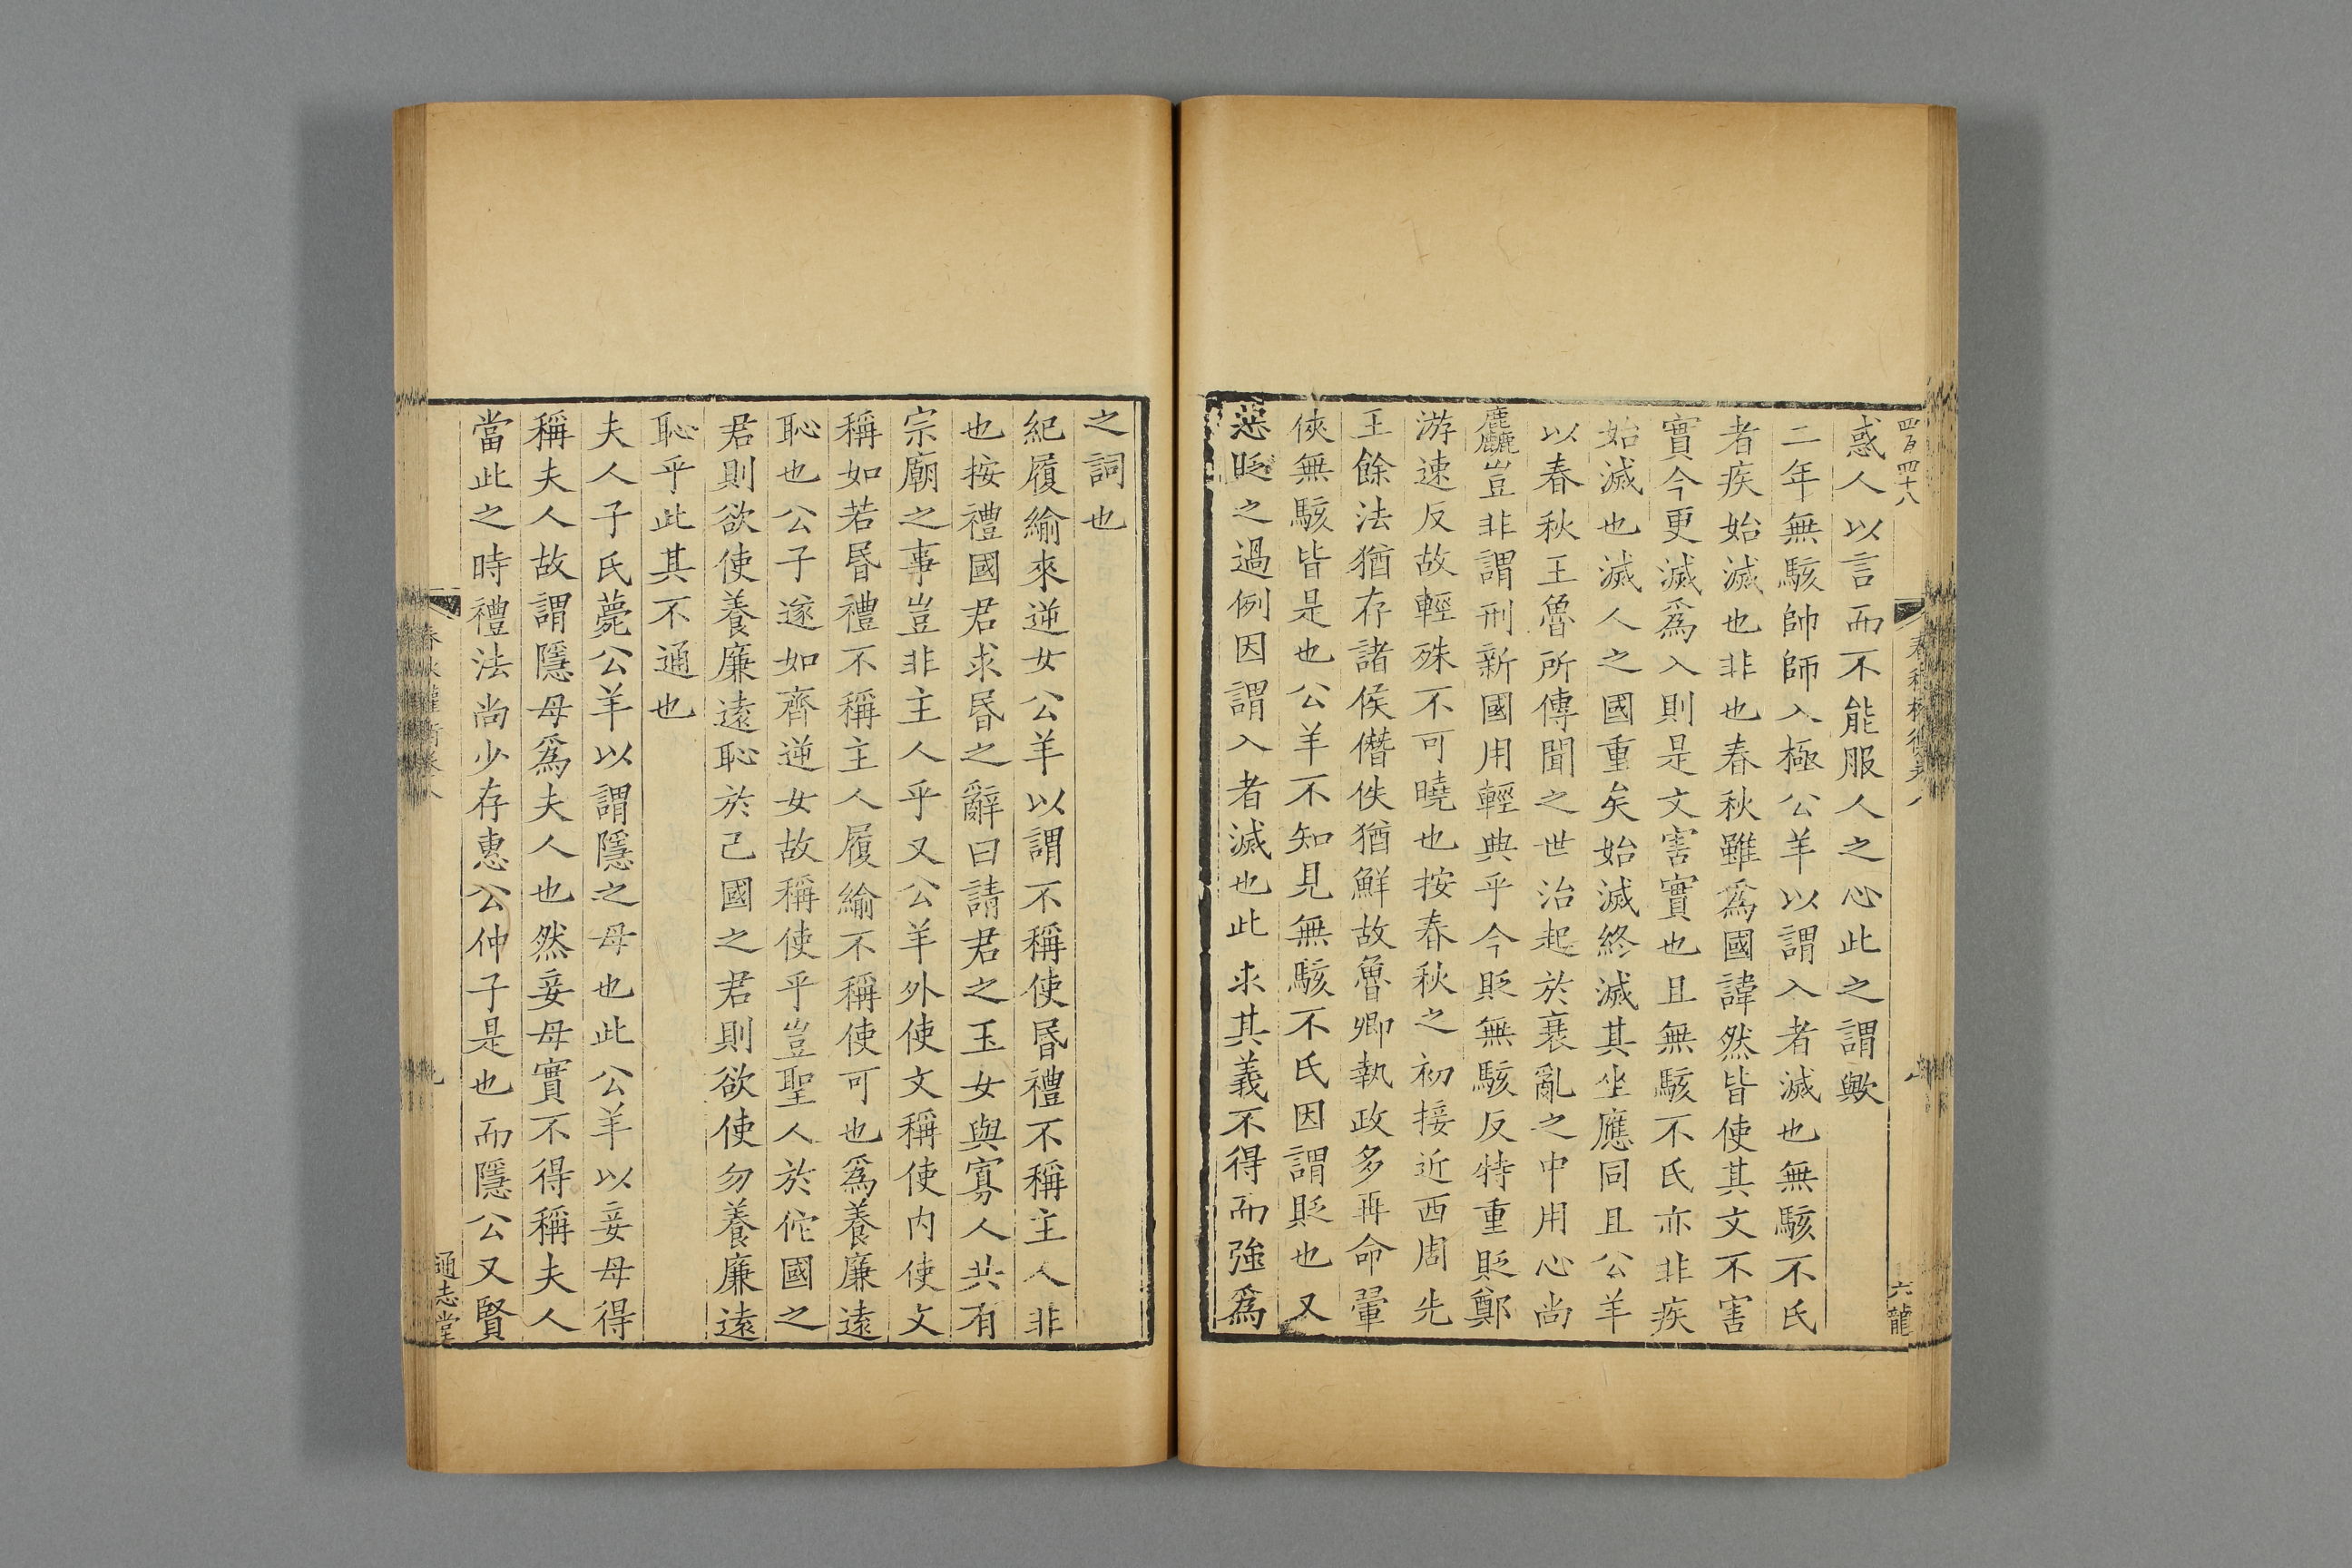 四百四十八
惑人以言而不能服人之心此之謂歟
二年無駭帥師入極公羊以謂入者滅也無駭不氏
者疾始滅也非也春秋雖為國諱然皆使其文不害
實今更滅為入則是文害實也且無駭不氏亦非疾
始滅也滅人之國重矣始滅終滅其坐應同且公羊
以春秋王魯所傳聞之世治起於衰亂之中用心尚
麤豈非謂刑新國用輕典乎今貶無駭反特重貶鄭
游速反故輕殊不可曉也按春秋之初接近西周先
王餘法猶存諸侯僭佚猶鮮故魯卿執政多再命翬
俠無駭皆是也公羊不知見無駭不氏因謂貶也又
惡貶之過例因謂入者滅也此求其義不得而強為
六龍
之詞也
紀履緰來逆女公羊以謂不稱使昏禮不稱主人非
也按禮國君求昏之辭曰請君之玉女與寡人共有
宗廟之事豈非主人乎又公羊外使文稱使內使文
稱如若昏禮不稱主人履緰不稱使可也為養廉遠
恥也公子遂如齊逆女故稱使乎豈聖人於佗國之
君則欲使養廉遠恥於己國之君則欲使勿養廉遠
恥乎此其不通也
夫人子氏薨公羊以謂隱之母也此公羊以妾母得
稱夫人故謂隱母為夫人也然妾母實不得稱夫人
當此之時禮法尚少存惠公仲子是也而隱公又賢
通志堂